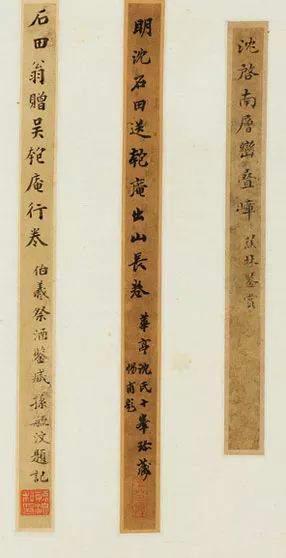 沈啓南層巒疊嶂
蕉林鑒賞
明沈石田送匏庵出山長卷
華亭沈氏十峯珍藏
惕甫題
石田翁贈吳匏庵行卷
伯羲祭酒鑒藏孫毓汶題記